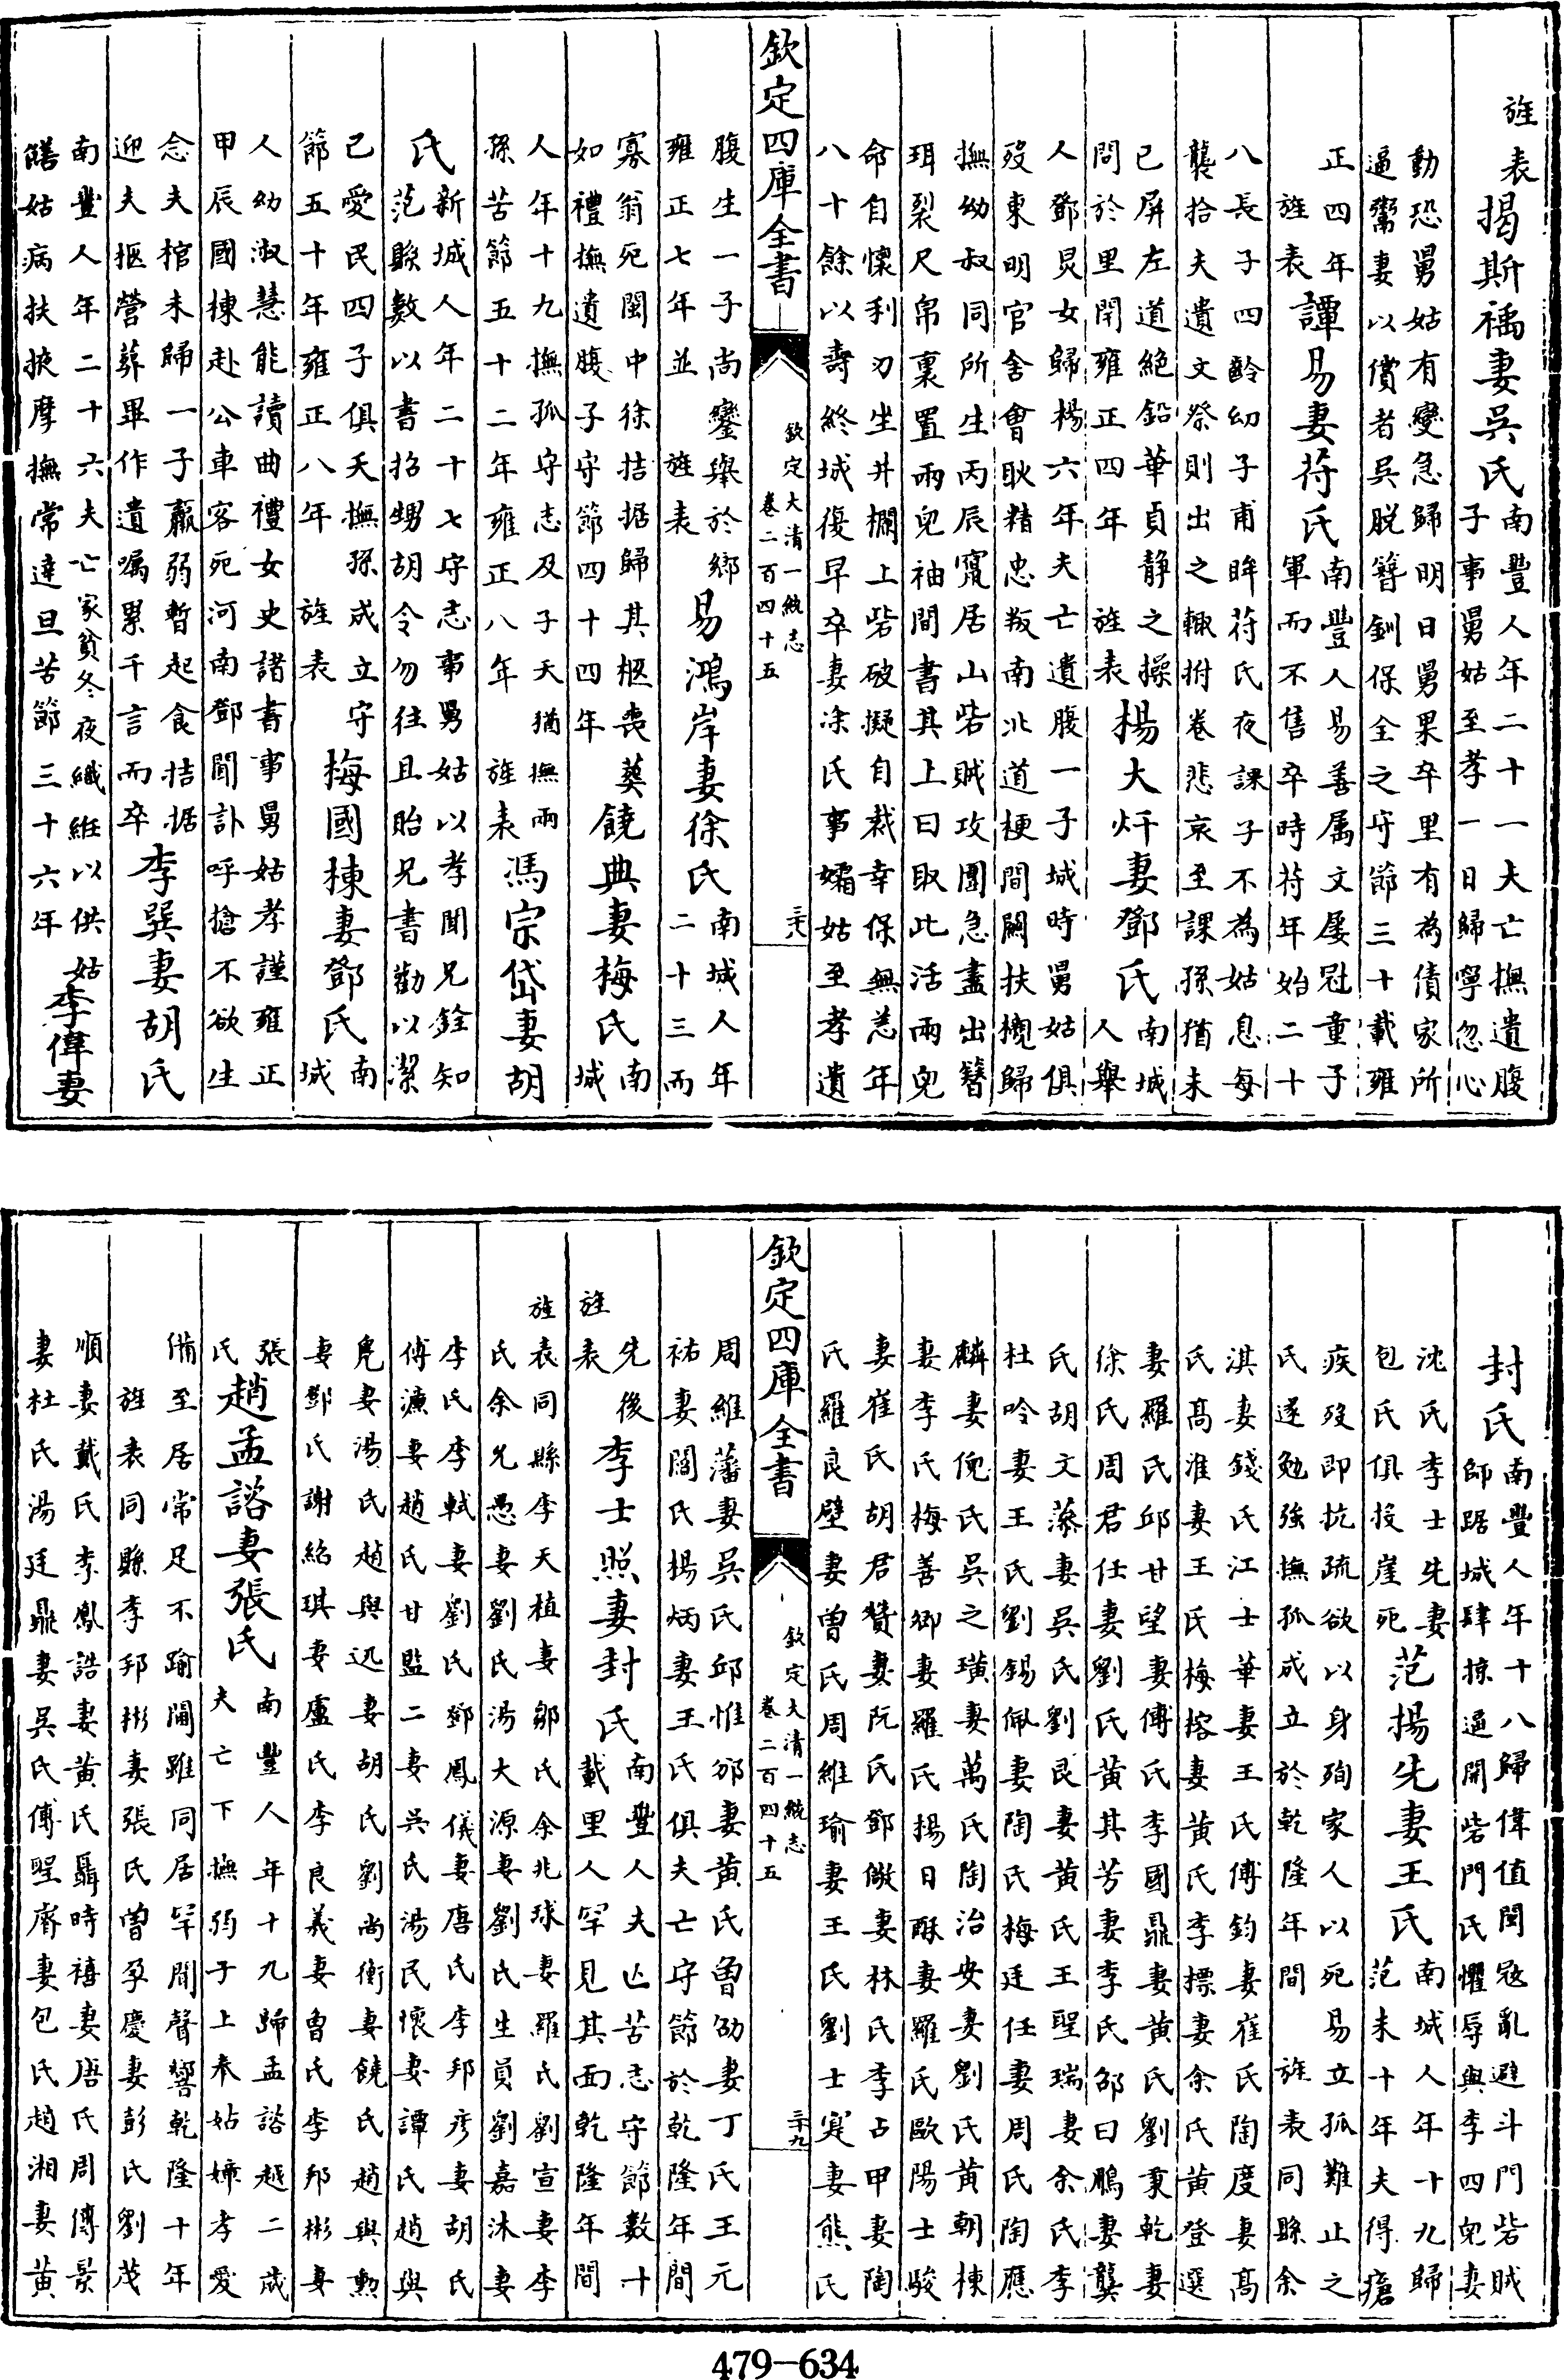 旌表揭斯禑妻吳氏
南豐人年二十一夫亡撫遺腹
子事舅姑至孝一日歸寧忽心
動恐舅姑有變急歸明日舅果卒里有為債家所
逼鬻妻以償者吳脱簪釧保全之守節三十載雍
正四年
旌表
譚易妻苻氏
南豐人易善属文屡冠童子
軍而不售卒時苻年始二十
八長子四齡幼子甫晬苻氏夜課子不為姑息每
襲拾夫遺文祭則出之輙拊卷悲哀至課孫猶未
已屏左道絶鉛華貞静之操
問於里閈雍正四年旌表
楊大炓妻鄧氏
南城
人舉
人鄧炅女歸楊六年夫亡遺腹一子城時舅姑俱
歿東明官舍會耿精忠叛南北道梗間關扶櫬歸
撫幼叔同所生丙辰寘居山砦賊攻圍急盡出簪
珥裂尺帛裹置兩兒袖間書其上曰取此活兩兒
命自懷利刃坐井欄上砦破擬自裁幸保無恙年
八十餘以壽終城復早卒妻凃氏事孀姑至孝遺
欽定四庫全書
欽定大清一統志
卷二百四十五
三十八
腹生一子尚鑾舉於鄉
雍正七年並旌表
易鴻岸妻徐氏
南城人年
二十三而
寡翁死閩中徐拮据歸其柩喪葬
如禮撫遺腹子守節四十四年
饒典妻梅氏
南
城
人年十九撫孤守志及子夭猶撫兩
孫苦節五十二年雍正八年旌表
馮宗岱妻胡
氏
新城人年二十七守志事舅姑以孝聞兄銓知
范縣數以書招甥胡令勿往且貽兄書勸以潔
已愛民四子俱夭撫孫成立守
節五十年雍正八年旌表
梅國棟妻鄧氏
南
城
人幼淑慧能讀曲禮女史諸書事舅姑孝謹雍正
甲辰國棟赴公車客死河南鄧聞訃呼搶不欲生
念夫棺未歸一子羸弱暫起食拮据
迎夫柩營葬畢作遺囑累千言而卒
李巽妻胡氏
南豐人年二十六夫亡家貧冬夜織絍以供姑
饍姑病扶掖摩撫常達旦苦節三十六年
李偉妻
封氏
南豐人年十八歸偉值閩寇亂避斗門砦賊
師踞城肆掠逼開砦門氏懼辱與李四兒妻
沈氏李士先妻
包氏俱投崖死
范揚先妻王氏
南城人年十九歸
范未十年夫得瘡
疾歿即抗疏欲以身殉家人以死易立孤難止之
氏遂勉強撫孤成立於乾隆年間旌表同縣余
淇妻錢氏江士華妻王氏傅鈞妻崔氏陶度妻高
氏髙淮妻王氏梅榕妻黄氏李標妻余氏黄登選
妻羅氏邱甘望妻傅氏李國鼎妻黄氏劉秉乾妻
徐氏周君任妻劉氏黄其芳妻李氏邵曰鵬妻龔
氏胡文藻妻吳氏劉良妻黄氏王聖瑞妻余氏李
杜吟妻王氏劉錫佩妻陶氏梅廷任妻周氏陶應
麟妻倪氏吳之璜妻萬氏陶治安妻劉氏黄朝棟
妻李氏梅善卿妻羅氏揚日酥妻羅氏歐陽士駿
妻崔氏胡君贊妻阮氏鄧儆妻林氏李占甲妻陶
氏羅良璧妻曾氏周維瑜妻王氏劉士寔妻熊氏
欽定四庫全書
欽定大清一統志
卷二百四十五
三十九
周維藩妻吳氏邱惟邠妻黄氏曾劭妻丁氏王元
祐妻闒氏揚炳妻王氏俱夫亡守節於乾隆年間
先後
旌表
李士照妻封氏
南豐人夫亡苦志守節數十
載里人罕見其面乾隆年間
旌表同縣李天植妻鄒氏余兆球妻羅氏劉宣妻李
氏余兄愚妻劉氏湯大源妻劉氏生員劉嘉沐妻
李氏李軾妻劉氏鄧鳳儀妻唐氏李邦彦妻胡氏
傅濂妻趙氏甘監二妻吳氏湯民懷妻譚氏趙與
凫妻湯氏趙與迅妻胡氏劉尚衡妻饒氏趙與勲
妻鄧氏謝紹琪妻盧氏李良義妻曾氏李邦彬妻
張
氏
趙孟諮妻張氏
南豐人年十九歸孟諮越二歲
夫亡下撫弱子上奉姑婦孝愛
備至居常足不踰閫雖同居罕聞聲響乾隆十年
旌表同縣李邦彬妻張氏曾孕慶妻彭氏劉茂
順妻戴氏李鳳誥妻黄氏聶時禧妻唐氏周傳景
妻杜氏湯廷鼎妻吳氏傅聖齊妻包氏趙湘妻黄
479-634